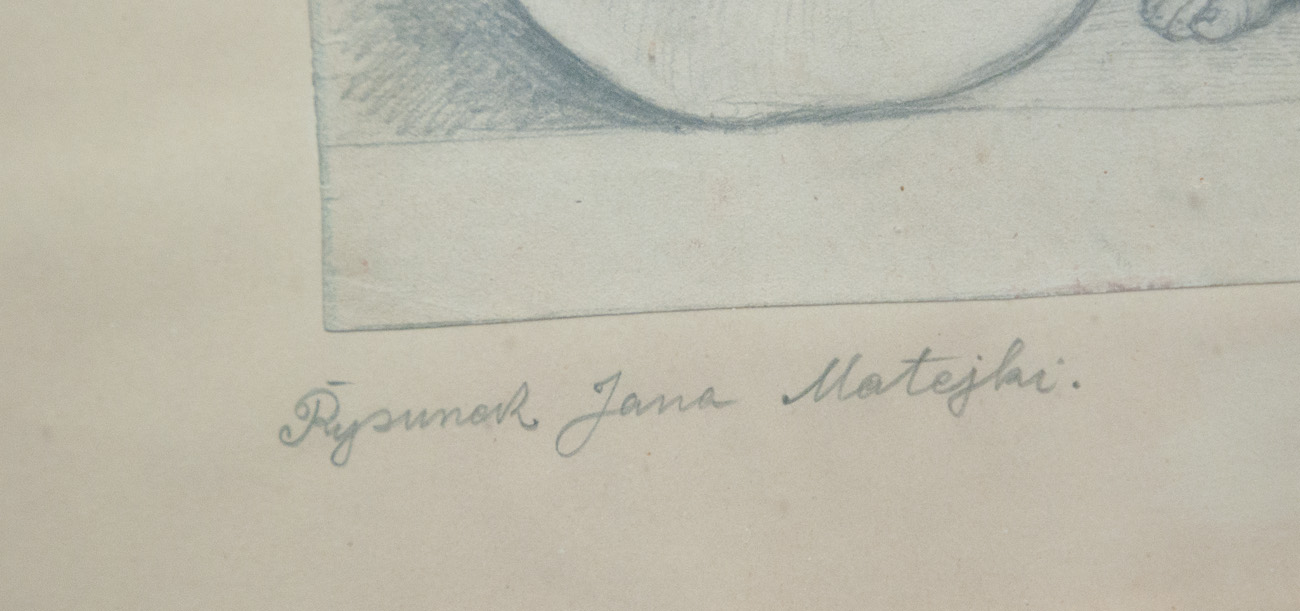 Rysunek Jana Matejki.